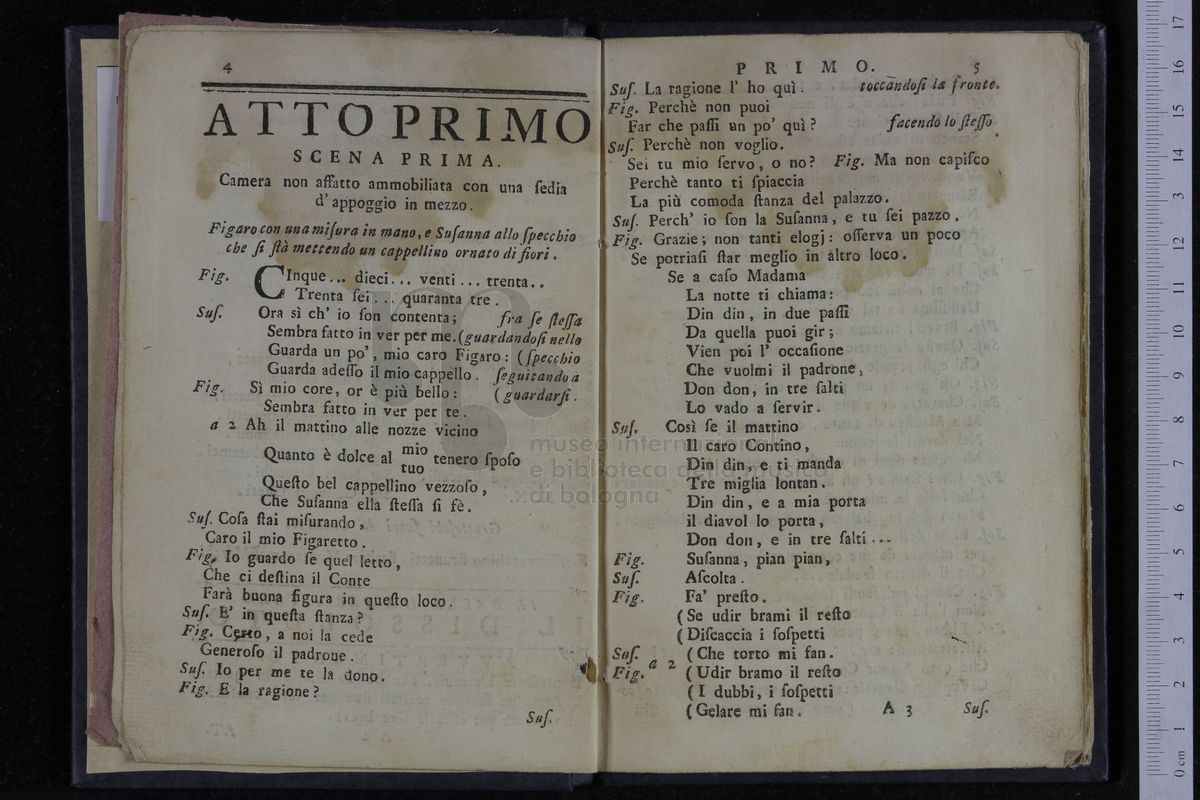 4
ATTO PRIMO
SCENA PRIMA.
Camera non affatto ammobiliata con una ſedia
d' appoggio in mezzo.
Figaro con una miſura in mano, e Suſanna allo ſpecchio
che ſi ſtà mettendo un cappellino ornato di fiori.
Fig. CInque... dieci... venti... trenta..
Trenta ſei... quaranta tre.
Suſ. Ora sì ch' io ſon contenta; fra ſe ſteſſa
Sembra fatto in ver per me. (guardandoſi nello
Guarda un po', mio caro Figaro: (ſpecchio
Guarda adeſſo il mio cappello. ſeguitando a
Fig. Sì mio core, or è più bello: (guardarſi.
Sembra fatto in ver per te.
a 2 Ah il mattino alle nozze vicino
Quanto è dolce al mio tenero ſpoſo
tuo
Queſto bel cappellino vezzoſo,
Che Suſanna ella ſteſſa ſi fè.
Suſ. Coſa ſtai miſurando,
Caro il mio Figaretto.
Fig. Io guardo ſe quel letto,
Che ci deſtina il Conte
Farà buona figura in queſto loco.
Suſ. E' in queſta ſtanza?
Fig. Certo, a noi la cede
Generoſo il padrone.
Suſ. Io per me te la dono.
Fig. E la ragione?
Suſ.
PRIMO. 5
Suſ. La ragione l' ho quì. toccandoſi la fronte.
Fig. Perchè non puoi
Far che paſſi un po' quì? facendo lo ſteſſo.
Suſ. Perchè non voglio.
Sei tu mio ſervo, o no? Fig. Ma non capiſco
Perchè tanto ti ſpiaccia
La più comoda ſtanza del palazzo.
Suſ. Perch' io ſon la Suſanna, e tu ſei pazzo.
Fig. Grazie; non tanti elogj: oſſerva un poco
Se potriaſi ſtar meglio in altro loco.
Se a caſo Madama
La notte ti chiama:
Din din, in due paſſi
Da quella puoi gir;
Vien poi l' occaſione
Che vuolmi il padrone,
Don don, in tre ſalti
Lo vado a ſervir.
Suſ. Così ſe il mattino
Il caro Contino,
Din din, e ti manda
Tre miglia lontan.
Din din, e a mia porta
il diavol lo porta,
Don don, e in tre ſalti...
Fig. Suſanna, pian pian,
Suſ. Aſcolta.
Fig. Fa' preſto.
(Se udir brami il reſto
(Diſcaccia i ſoſpetti
Suſ. (Che torto mi fan.
Fig. a 2 (Udir bramo il reſto
(I dubbi, i ſoſpetti
(Gelare mi fan. A 3 Suſ.
museo internazionale
e biblioteca della musica
di bologna
0 cm 1 2 3 4 5 6 7 8 9 10 11 12 13 14 15 16 17